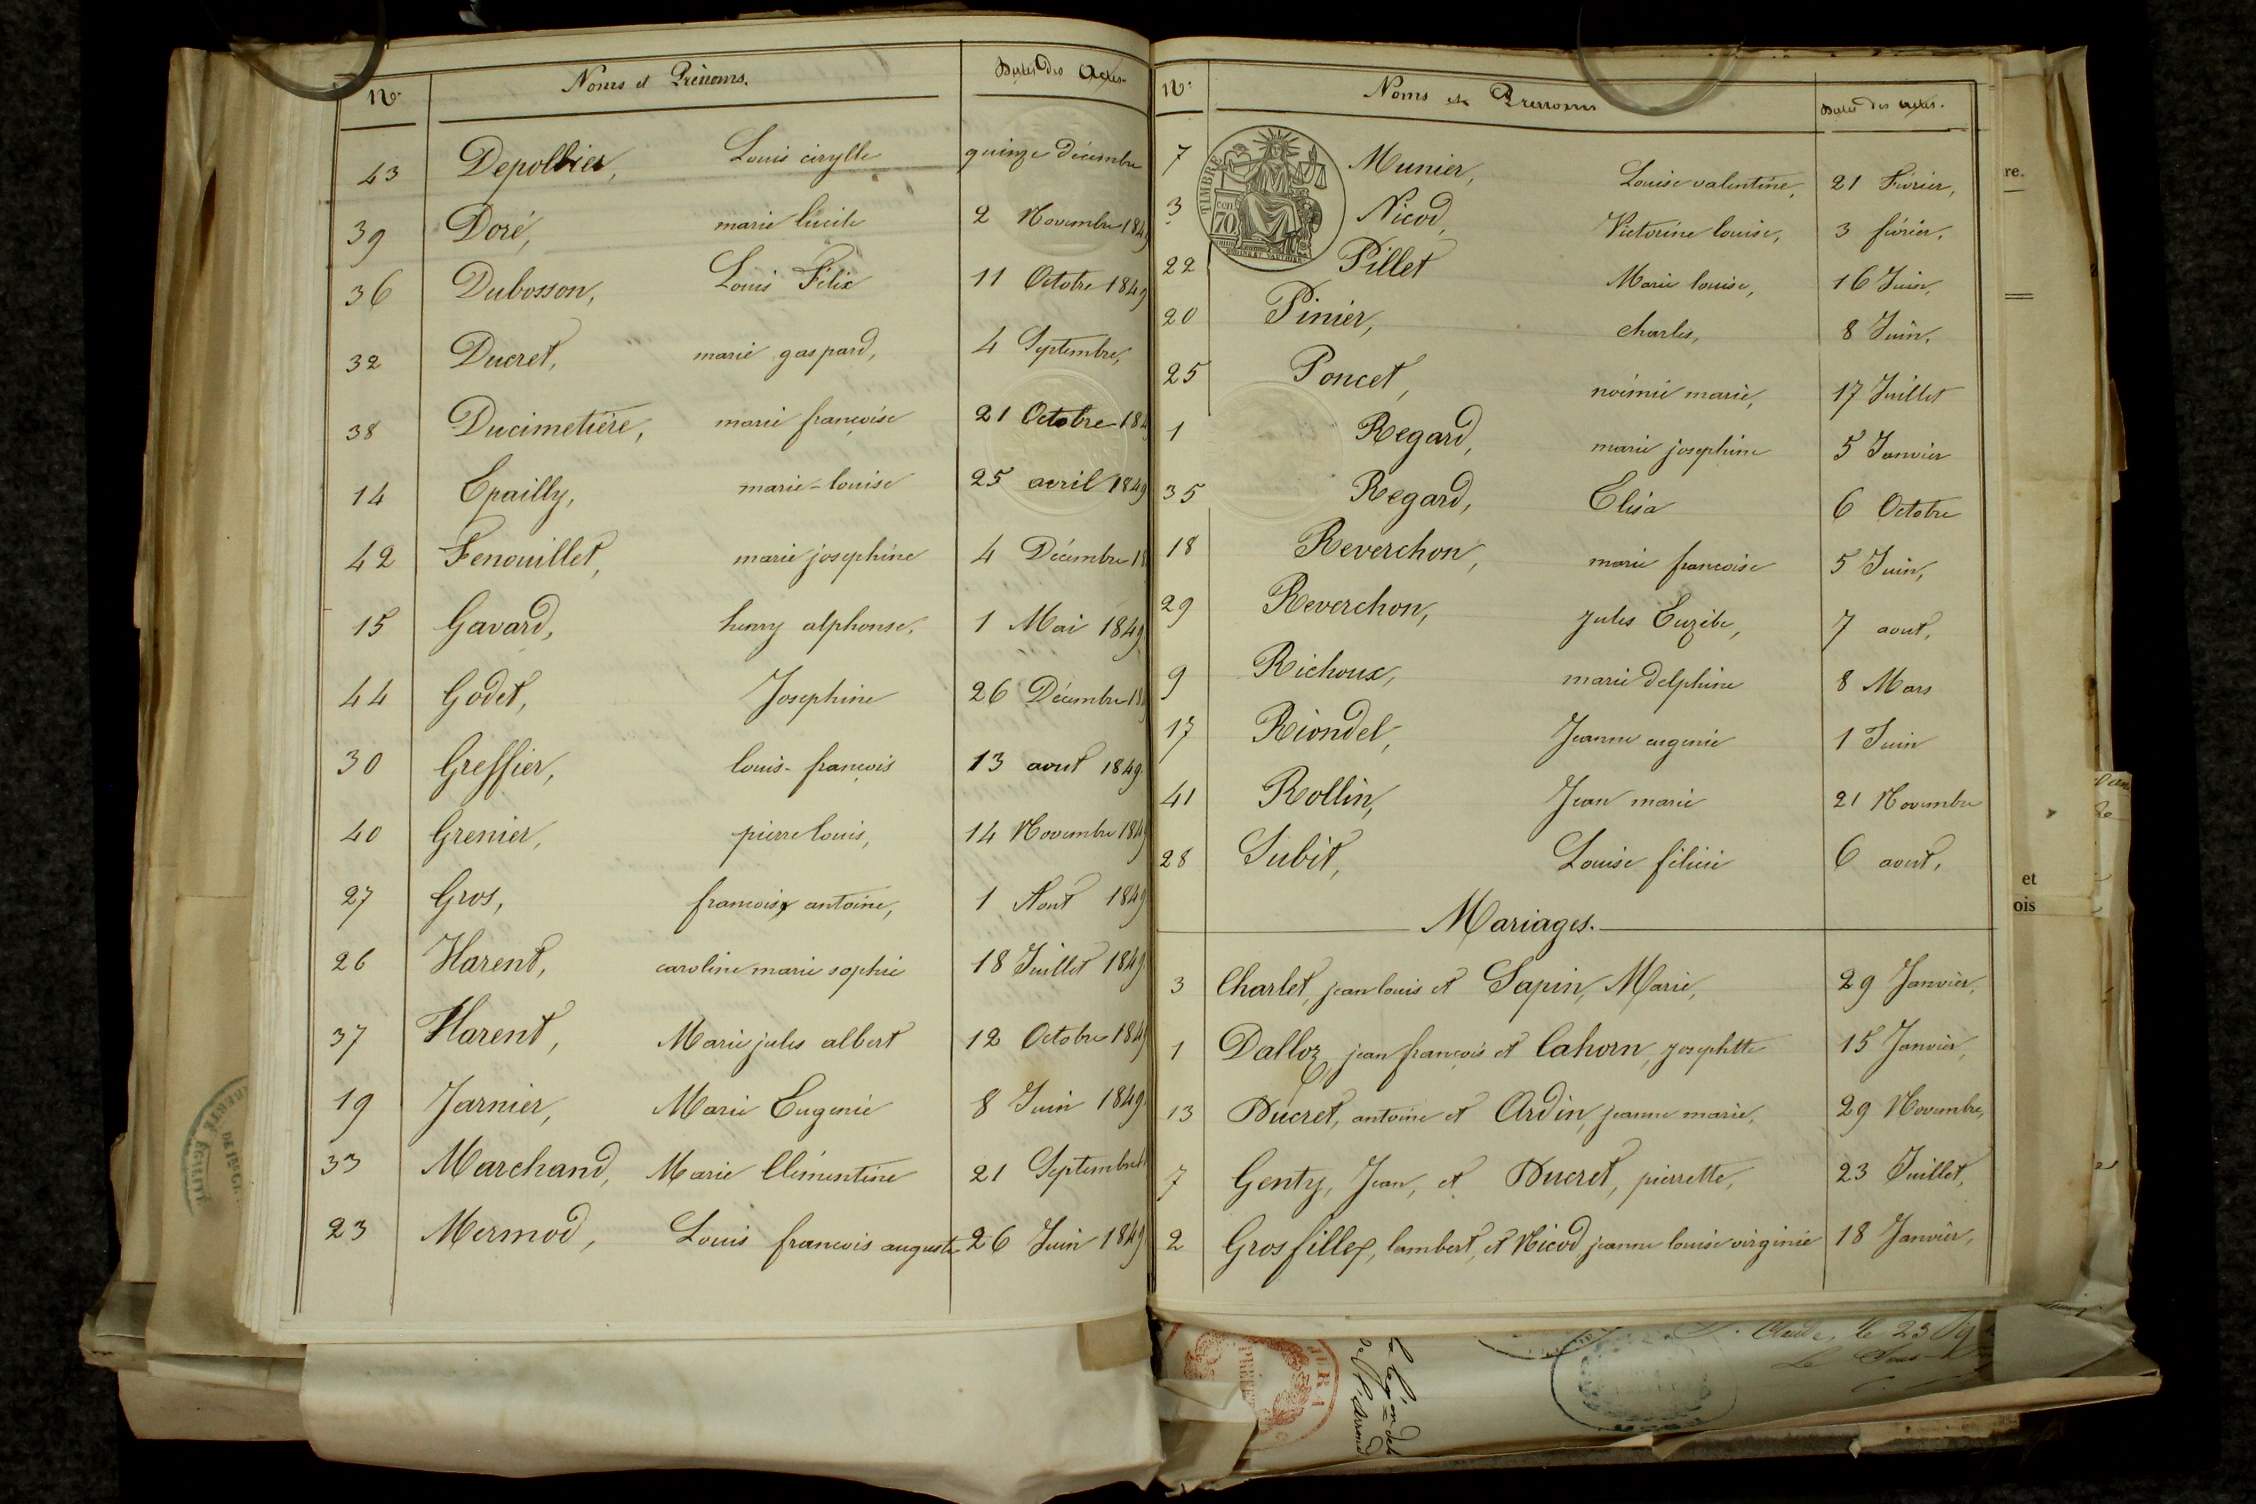 N.° Noms et Prénoms. Dates des Actes.
43 Depollier, Louis cirylle quinze décembre
39 Doré, marie lucile 2 Novembre 1849
36 Dubosson, Louis Félix 11 Octobre 1849
32 Ducret, marie gaspard, 4 Septembre,
38 Ducimetière, marie françoise 21 Octobre 184
14 Epailly, marie-louise 25 avril 1849
42 Fenouillet, marie josephine 4 Décembre 18
15 Gavard, henry alphonse. 1 Mai 1849
44 Godet, Josephine 26 Décembre 18
30 Greffier, louis-françois 13 aout 1849.
40 Grenier, pierre louis, 14 Novembre 1849
27 Gros, francois antoine, 1 Aout 1849
26 Harent, caroline marie sophie 18 Juillet 1849
37 Harent, Marie jules albert 12 Octobre 1849
19 Jarnier, Marie Eugenie 8 Juin 1849.
33 Marchand, Marie Clémentine 21 Septembre
23 Mermod, Louis francois auguste 26 Juin 1849
N.° Noms et Prenoms Dates des actes.
TIMBRE
70
7 Munier, Louise valentine, 21 Février,
3 Nicod, Victorine louise, 3 février.
22 Pillet Marie louise, 16 Juin,
20 Pinier, charles, 8 Juin.
25 Poncet, noémie marie, 17 Juillet
1 Regard, marie josephine 5 Janvier
35 Regard, Elisa 6 Octobre
18 Reverchon, marie francoise 5 Juin,
29 Reverchon, Jules Euzèbe, 7 aout,
9 Richoux, marie delphine 8 Mars
17 Riondel, Jeanne eugenie 1 Juin
41 Rollin, Jean marie 21 Novembre
28 Subit, Louise félicie 6 aout,
Mariages.
3 Charlet, jean louis et Sapin, Marie, 29 Janvier,
1 Dalloz, jean françois et Cahorn, josephtte 15 Janvier,
13 Ducret, antoine et Ardin, jeanne marie, 29 Novembre,
7 Genty, Jean, et Ducret, pierrette, 23 Juillet,
2 Grosfilley, lambert, et Nicod jeanne louise virginie 18 Janvier,
re.
et
ois
JURA
le 23